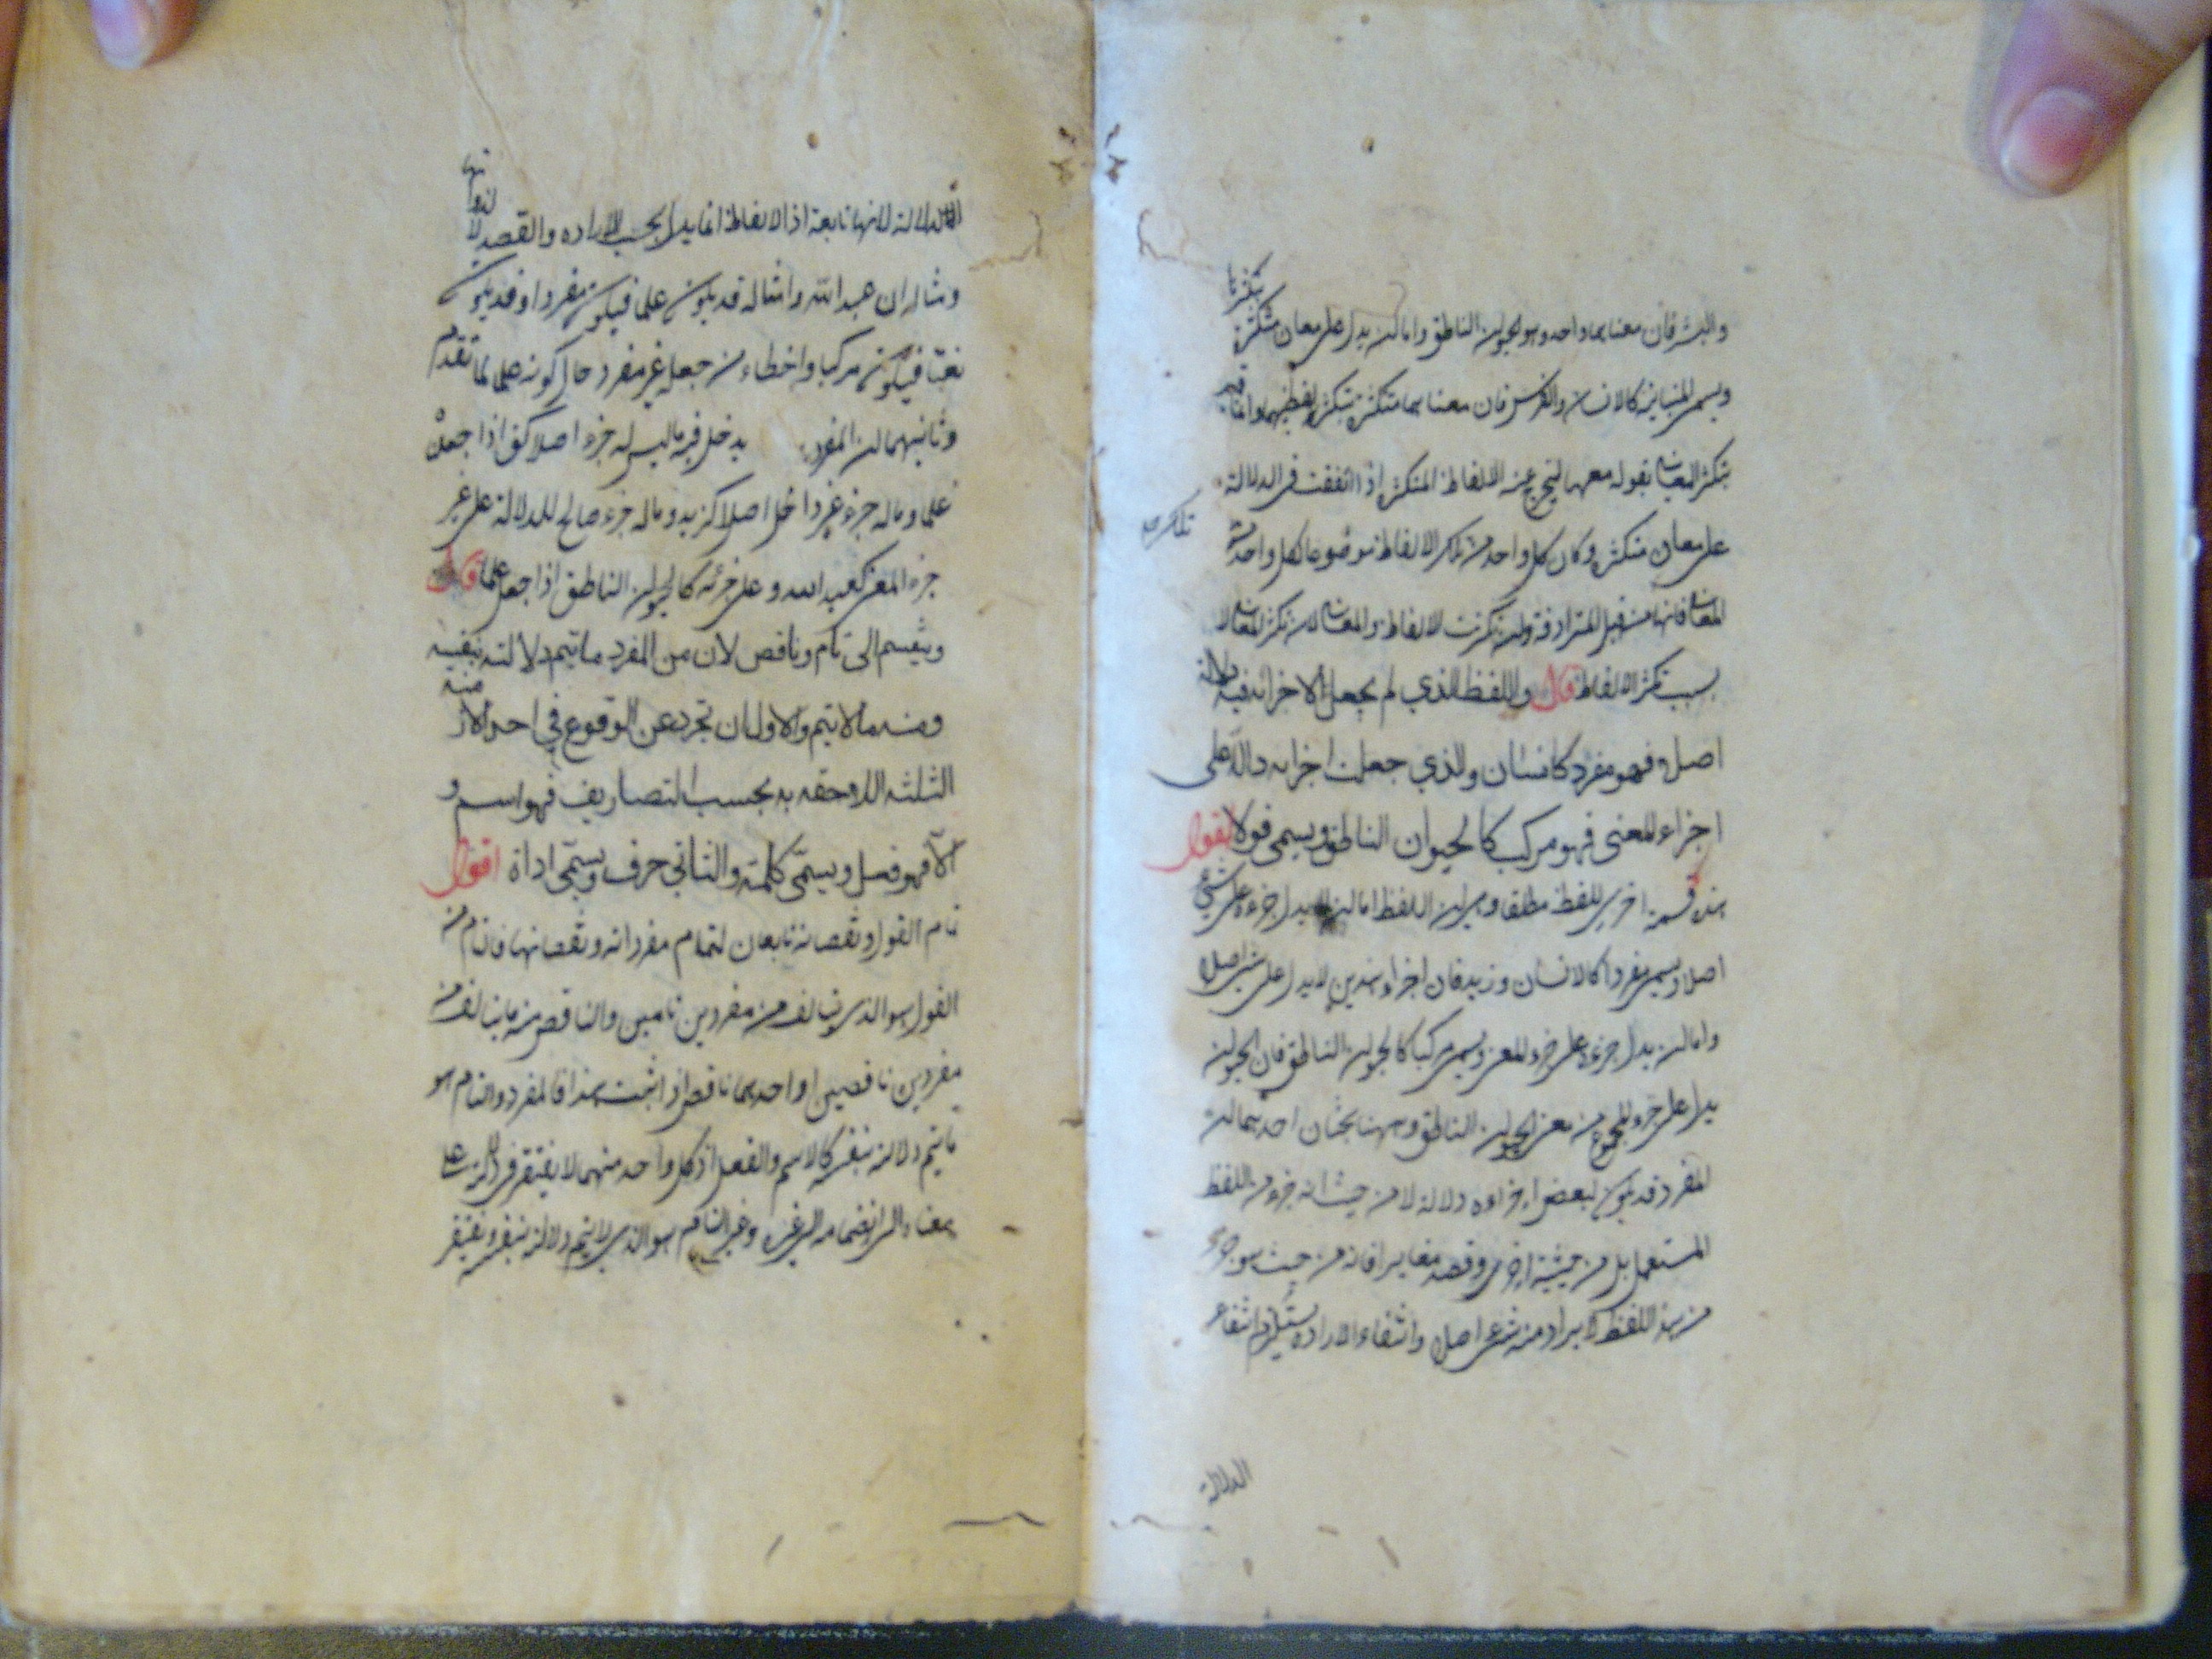 والبشر فان معناهما واحد وهو الحيوان الناطق واما ان يدل على معان متكثرة بتكثرها
ويسمى المتباينة كالانسان والفرس فان معناهما متكثرة بتكثر لفظيهما وانما قيد
بتكثر المعاني بقوله معها ليخرج عنه الالفاظ المتكثرة اذا اتفقت في الدلالة
على معان متكثرة وكان كل واحد من تلك الالفاظ موضوعا لكل واحد من
المعاني فانها من قبيل المترادفة وان تكثرت الالفاظ والمعاني لان تكثر المعاني لا
بسبب تكثر الالفاظ قال واللفظ الذي لم يجعل لاجزائه فيه دلالة
اصلا فهو مفرد كانسان والذي جعلت اجزاءه دالة على
اجزاء المعنى فهو مركب كالحيوان الناطق ويسمى قولا اقول
هذه قسمة اخرى للفظ مطلقا وهي ان اللفظ اما ان لا يدل جزءه على شيء
اصلا ويسمى مفردا كالانسان وزيد فان اجزاء هذين لا يدل على شيء اصلا
واما ان يدل جزءه على جزء المعنى ويسمى مركبا كالحيوان الناطق فان الحيوان
يدل على جزء المجموع من معنى الحيوان الناطق وههنا بحثان احدهما ان
المفرد قد يكون لبعض اجزاءه دلالة لا من حيث انه جزء من اللفظ
المستعمل بل من حيثية اخرى وقصد مغاير فانه من حيث هو جزء
من هذا اللفظ لا يراد منه شيء اصلا وانتفاء الارادة يستلزم انتفاء
الدلالة
الدلالة لانها تابعة اذ الالفاظ انما يدل بحسب الارادة والقصد لا لذواتها
ومثاله ان عبد الله وامثاله قد يكون علما فيكون مفردا وقد يكون
نعتا فيكون مركبا واخطاء من جعله غير مفرد حال كونه علما لما تقدم
وثانيهما ان المفرد يدخل فيه ما ليس له جزء اصلا كق اذا جعل
علما وما له جزء غير دال اصلا كزيد وما له جزء صالح للدلالة على غير
جزء المعنى كعبد الله وعلى جزئه كالحيوان الناطق اذا جعل علما قال
وينقسم الى تام وناقص لان من المفرد ما يتم دلالته بنفسه
ومنه ما لا يتم والاول ان تجرد عن الوقوع في احد الازمنة
الثلثه اللاحقه به بحسب التصاريف فهو اسم و
الا فهو فعل ويسمى كلمة والثاني حرف ويسمى اداة اقول
تام القول ونقصانه تابعان لتمام مفرداته ونقصانها فالتام من
القول هو الذي يتالف من مفردين تامين والناقص منه ما يتالف من
مفردين ناقصين او احدهما ناقص اذا ثبت هذا فالمفرد والتام هو
ما يتم دلالته بنفسه كالاسم والفعل اذ كل واحد منهما لا يفتقر في دلالته على
معناه الى انضمامه الى غيره وغير التام هو الذي لا يتم دلالته بنفسه ويفتقر